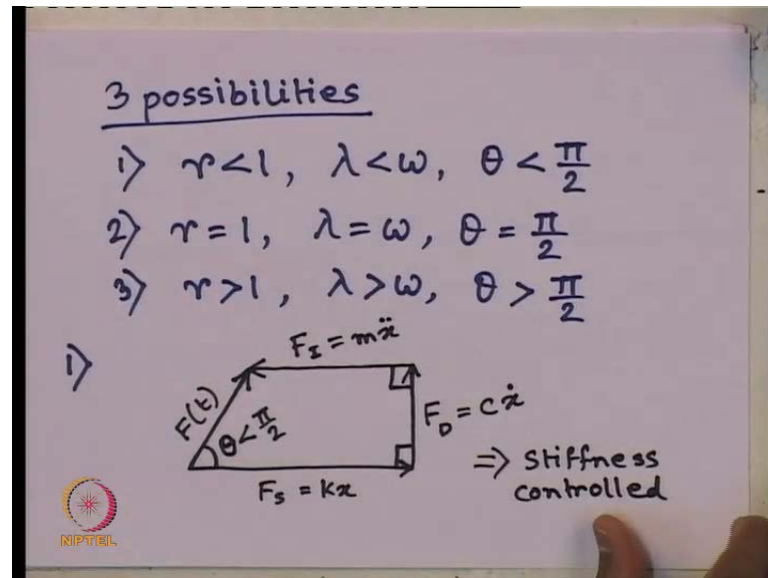 3 possibilities
1) r<1, λ<ω, θ<π/2
2) r=1, λ=ω, θ=π/2
3) r>1, λ>ω, θ>π/2
1)
F_I = mẍ
F(t)
θ<π/2
F_D = cẋ
F_S = kx
⇒ stiffness
controlled
NPTEL